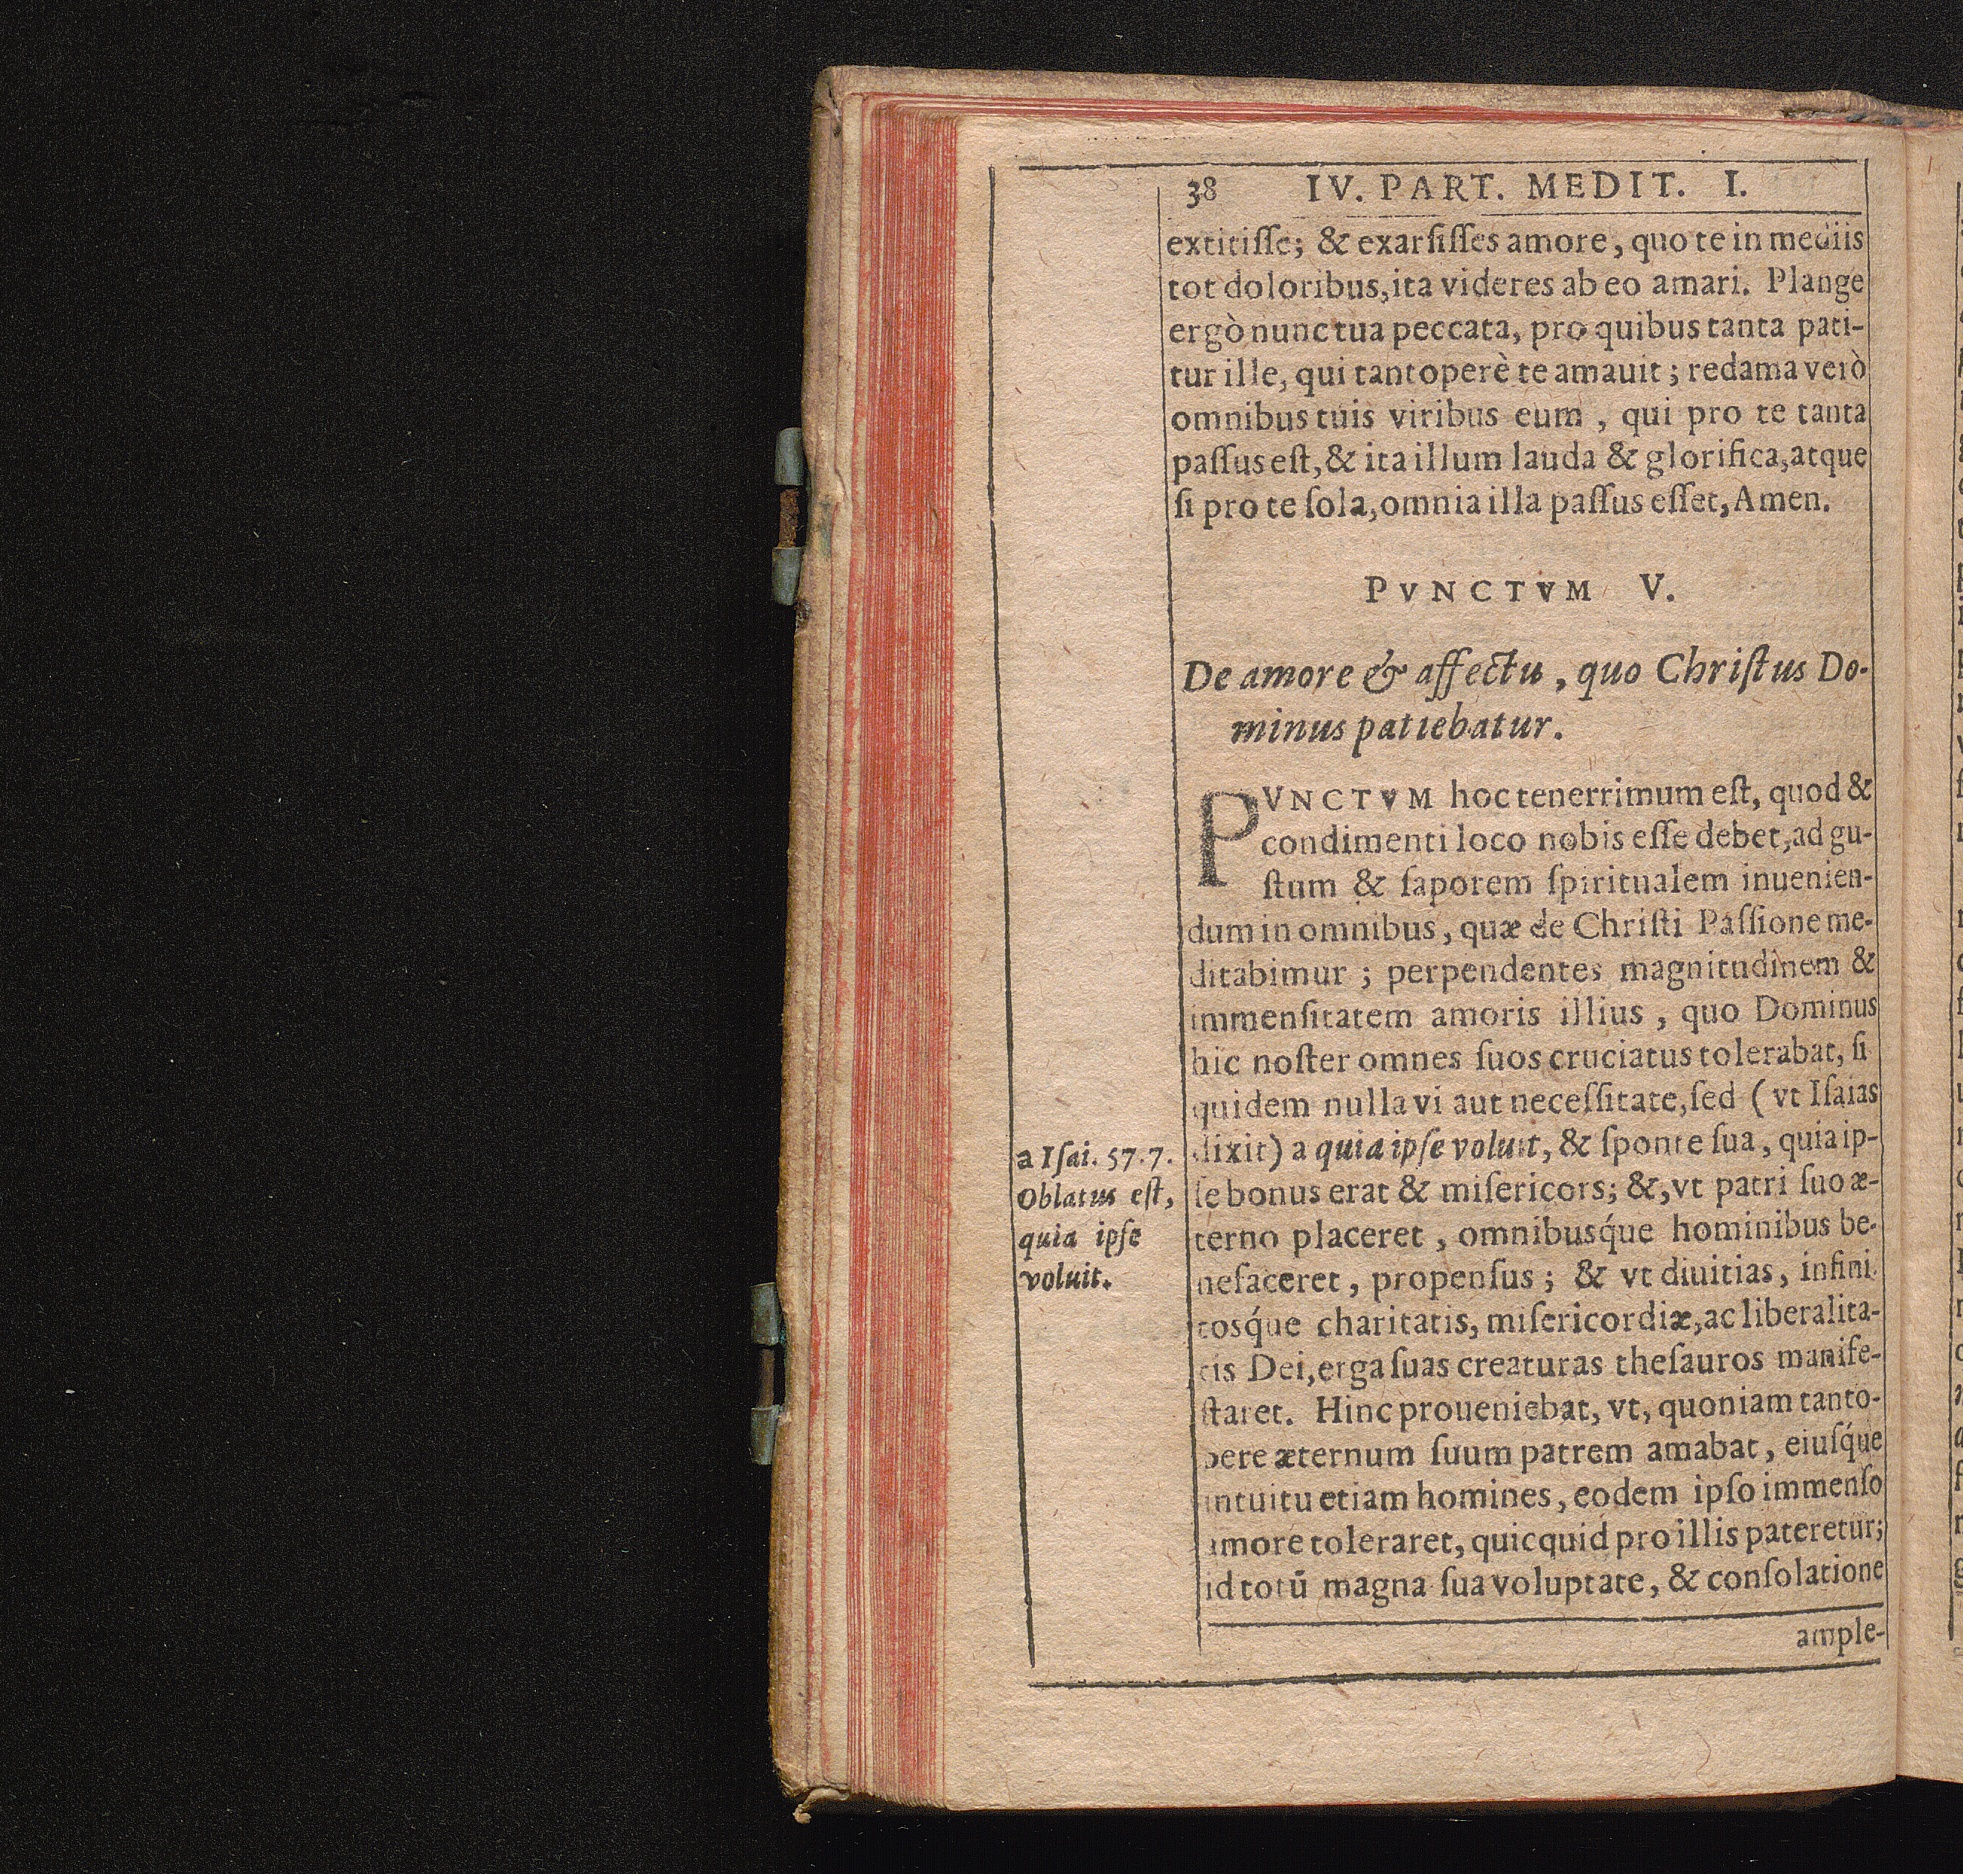 38 IV. PART. MEDIT. I.
extitiſſe; & exarſiſſes amore, quo te in mediis
tot doloribus, ita videres ab eo amari. Plange
ergò nunc tua peccata, pro quibus tanta pati-
tur ille, qui tantoperè te amauit; redama verò
omnibus tuis viribus eum, qui pro te tanta
paſſus eſt, & ita illum lauda & glorifica, atque
ſi pro te ſola, omnia illa paſſus eſſet, Amen.
PVNCTVM V.
De amore & affectu, quo Chriſtus Do-
minus patiebatur.
PVNCTVM hoc tenerrimum eſt, quod &
condimenti loco nobis eſſe debet, ad gu-
ſtum & ſaporem ſpiritualem inuenien-
dum in omnibus, quæ de Chriſti Paſſione me-
ditabimur; perpendentes magnitudinem &
immenſitatem amoris illius, quo Dominus
hic noſter omnes ſuos cruciatus tolerabat, ſi
quidem nulla vi aut neceſſitate, ſed (vt Iſaias
dixit) a quia ipſe voluit, & ſponte ſua, quia ip-
ſe bonus erat & miſericors; &, vt patri ſuo æ-
terno placeret, omnibusq́ue hominibus be-
nefaceret, propenſus; & vt diuitias, infini-
tosq́ue charitatis, miſericordiæ, ac liberalita-
tis Dei, erga ſuas creaturas theſauros manife-
ſtaret. Hinc proueniebat, vt, quoniam tanto-
pere æternum ſuum patrem amabat, eiuſq́ue
intuitu etiam homines, eodem ipſo immenſo
amore toleraret, quicquid pro illis pateretur;
id totū magna ſua voluptate, & conſolatione
ample-
a Iſai. 57.7.
Oblatus eſt,
quia ipſe
voluit.